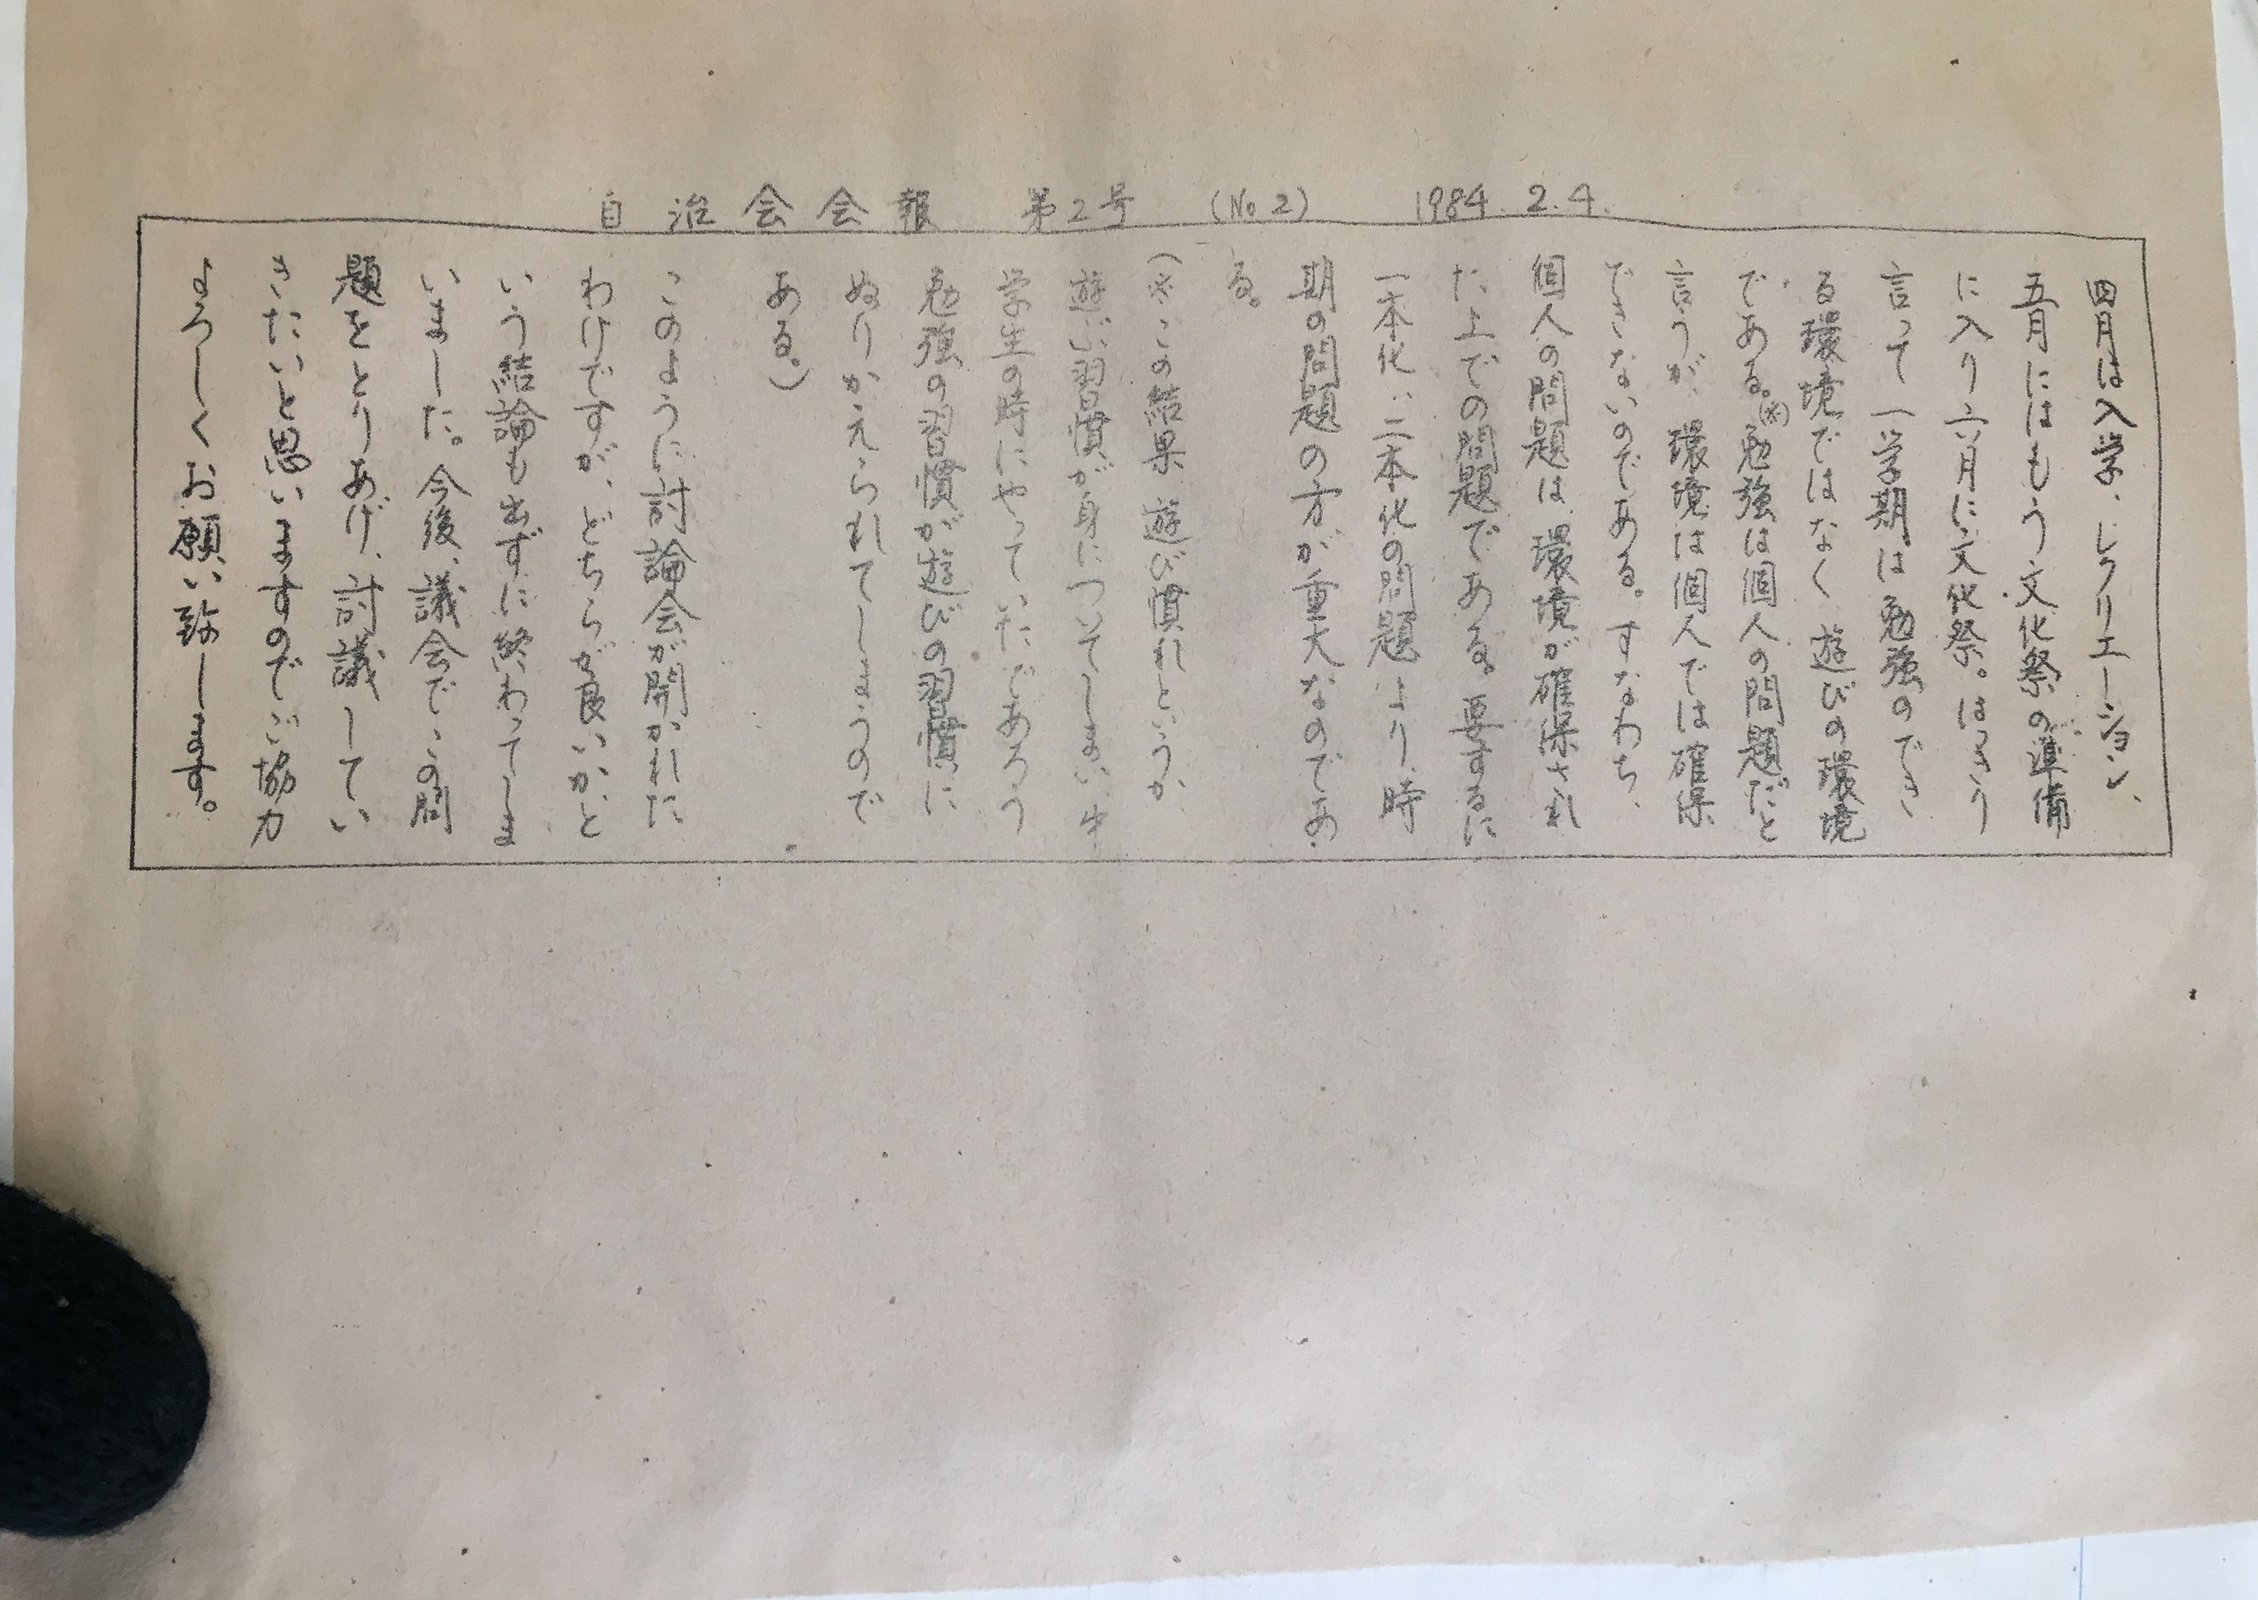 自治会会報　第2号　(No 2)　1984.2.4.
四月は入学、レクリエーション、
五月にはもう文化祭の準備
に入り六月に文化祭。はっきり
言って一学期は勉強のでき
る環境ではなく、遊びの環境
である。(※)勉強は個人の問題だと
言うが、環境は個人では確保
できないのである。すなわち、
個人の問題は、環境が確保され
た上での問題である。要するに
一本化、二本化の問題より、時
期の問題の方が重大なのであ
る。
(※この結果、遊び慣れというか、
遊ぶ習慣が身についてしまい、中
学生の時にやっていたであろう
勉強の習慣が遊びの習慣に
ぬりかえられてしまうので
ある。)
このように討論会が開かれた
わけですが、どちらが良いか、と
いう結論も出ずに終わってしま
いました。今後、議会でこの問
題をとりあげ、討議してい
きたいと思いますのでご協力
よろしくお願い致します。